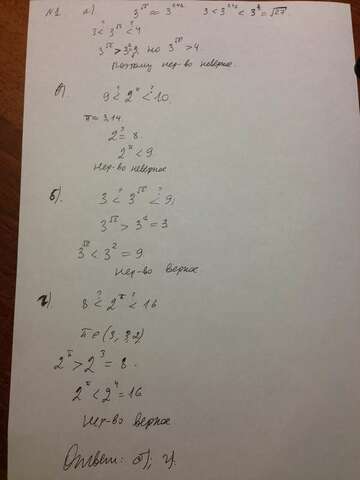 №1. а) 3^√2 ≈ 3^1,41 3 < 3^1,41 < 3^(3/2) = √27
3 <? 3^√2 <? 4
но 3^√2 > 4.
Поэтому нер-во неверно.
в) 9 <? 2^π <? 10.
π = 3,14.
2^3 = 8.
2^π < 9
Нер-во неверное
б). 3 <? 3^√2 <? 9;
3^√2 > 3^1 = 3
3^√2 < 3^2 = 9.
Нер-во верное
г) 8 <? 2^π <? 16
π ∈ (3; 3,2)
2^π > 2^3 = 8.
2^π < 2^4 = 16
Нер-во верное
Ответ: б); г).